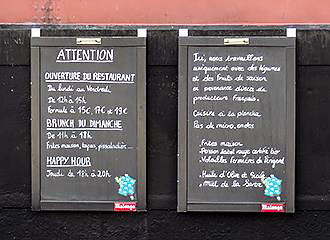 ATTENTION
OUVERTURE DU RESTAURANT
Du lundi au Vendredi
De 12h à 15h
Formule à 15€, 17€ et 19€
BRUNCH DU DIMANCHE
De 11h à 17h
Frites maison, tapas, pissaladière...
HAPPY HOUR
Jeudi de 18h à 20h
Malongo
Ici, nous travaillons
uniquement avec des légumes
et des fruits de saison
en provenance directe de
producteurs français.
Cuisine à la plancha
Pas de micro, ondes
Frites maison
label rouge certifié bio
Volailles fermières de
Huile d'Olive de
Miel de la
Malongo